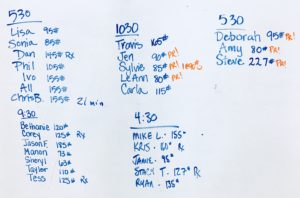 530
Lisa 95#
Sonia 85#
Dan 145# Rx
Phil 105#
Ivo 155#
Ali 155#
Chris B. 155# 21 min
9:30
Bethanie 120#
Corey 125# Rx
Jason F. 185#
Manon 73#
Sheryl 63#
Taylor 110#
Tess 123# Rx
1030
Travis 165#
Jen 90# PR!
Sylvie 85# PR!
LeAnn 80# PR!
Carla 115#
4:30
MIKE L. - 155#
KRIS - 60# Rx
JAMIE - 95#
STACY T. - 127# Rx
RYAN - 135#
530
Deborah 95# PR!
Amy 80# PR!
Steve 227# PR!